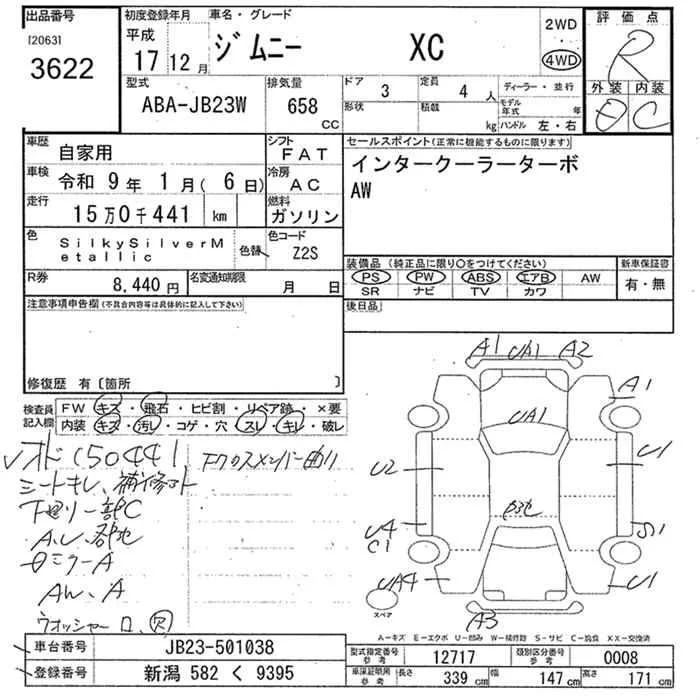 出品番号
[2063]
3622
初度登録年月
平成
17 12月
車名・グレード
ジムニー XC
2WD
4WD
評価点
R
外装 内装
C
型式
ABA-JB23W
排気量
658
CC
ドア 3
形状
定員 4人
積載 kg
ディーラー・並行
モデル年式 年
ハンドル 左・右
車歴
自家用
車検
令和 9年 1月( 6日)
走行
15万0千441 km
シフト
FAT
冷房
AC
燃料
ガソリン
セールスポイント(正常に機能するものに限ります)
インタークーラーターボ
AW
色
SilkySilverM
etallic
色替
色コード
Z2S
装備品(純正品に限り○をつけてください)
PS PW ABS エアB AW
SR ナビ TV カワ
新車保証書
有・無
R券
8,440円
名変通知期限
月 日
後日品
注意事項申告欄(不具合内容等は具体的に記入して下さい)
修復歴 有〔箇所 〕
検査員
記入欄
FW キズ・飛石・ヒビ割・リペア跡・×要
内装 キズ・汚レ・コゲ・穴・スレ・キレ・破レ
オド(150441
シートキレ、補修下
下廻リ一部C
ミラーA
AW、A
ウオッシャー口、欠
A1 UA1 A2
A1
UA1
U2
U1
U4
C1
S1
UA4
U1
A3
スペア
A−キズ E−エクボ U−凹み W−補修跡 S−サビ C−腐食 XX−交換済
車台番号 JB23-501038
登録番号 新潟 582 く 9395
型式指定番号
参考
12717
類別区分番号
参考
0008
車検証明用
参考
長さ 339cm 幅 147cm 高さ 171cm